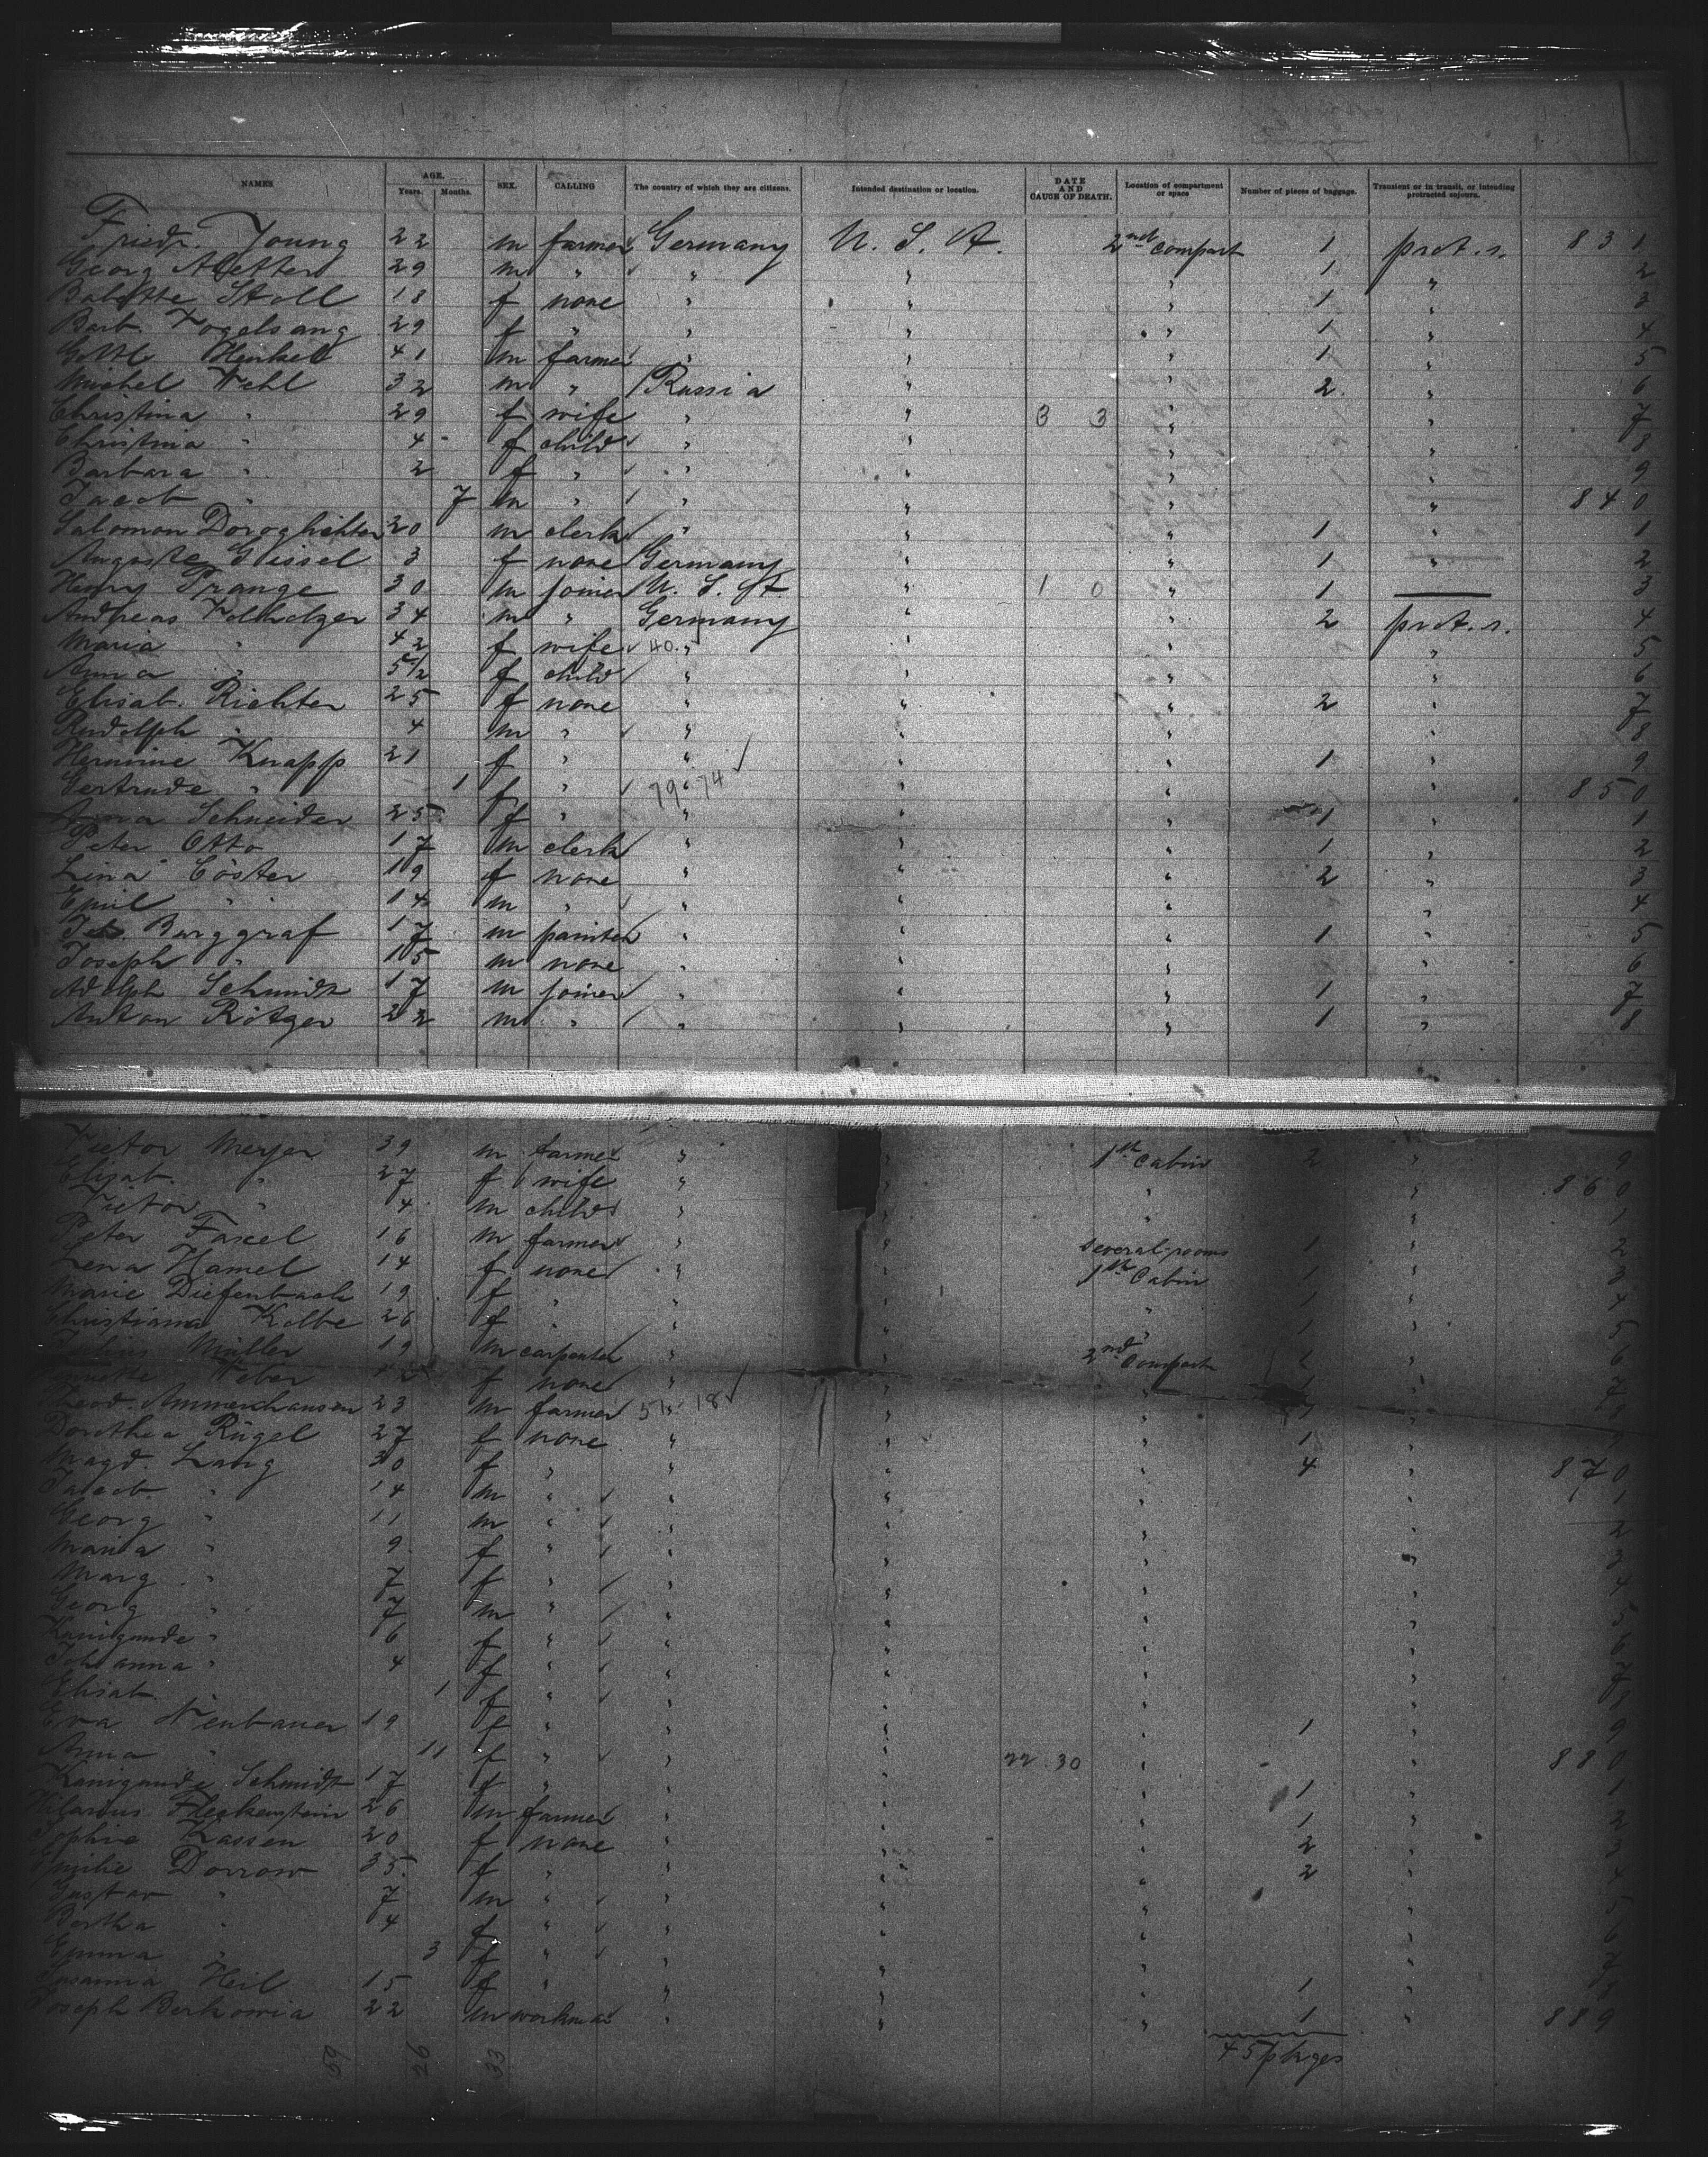 NAMES AGE. Years. Months. SEX. CALLING The country of which they are citizens. Intended destination or location. DATE AND CAUSE OF DEATH. Location of compartment or space Number of pieces of baggage. Transient or in transit, or intending protracted sojourn.
Friedr. Young 22 m farmer Germany U. S. A. 2nd Compart 1 prot. s. 831
Georg 29 m " " " " 1 " 2
Babette Stoll 18 f none " " " 1 " 3
Barb. Vogelsang 29 f " " " " 1 " 4
Gottl. Henkel 41 m farmer " " " 1 " 5
Michel Wehl 32 m " Russia " " 2 " 6
Christina " 29 f wife " " 3 3 " " 7
Christina " 4 f child " " " " 8
Barbara " 2 f " " " " " 9
Jacob " 7 m " " " " " 840
Salomon 20 m clerk " " " 1 " 1
Auguste Gissel 3 f none Germany " " 1 " 2
Henry Prange 30 m joiner U. S. A. " 1 0 " 1 — 3
Andreas 34 m " Germany " " 2 prot. s. 4
Maria " 42 f wife 40. " " " " 5
Anna " 5 1/2 f child " " " " 6
Elisab. Richter 25 f none " " " 2 " 7
Rudolph " 4 m " " " " " 8
Hermine Knapp 21 f " " " " 1 " 9
Gertrude " 1 f " 79 " 74 " " " 850
Anna Schneider 25 f " " " " 1 " 1
Peter Otto 17 m clerk " " " 1 " 2
Lina Cöster 19 f none " " " 2 " 3
Emil " 14 m " " " " " 4
Burggraf 17 m painter " " " 1 " 5
Joseph " 15 m none " " " " 6
Adolph Schmidt 17 m joiner " " " 1 " 7
Anton Rötger 22 m " " " " 1 " 8
Victor Meyer 39 m farmer " " 1st Cabin 2 " 9
Elisab. " 27 f wife " " " " 860
Victor " 4 m child " " " " 1
Peter Faxel 16 m farmer " " several rooms 1 " 2
Lena Hamel 14 f none " " 1st Cabin 1 " 3
Marie Diefenbach 19 f " " " " 1 " 4
Christiana Kolbe 26 f " " " " 1 " 5
Julius Müller 19 m carpenter " " 2nd Compart 1 " 6
Weber f none " " " 7
Ammerhausen 23 m farmer " " " 8
Dorothea Rügel 27 f none " " " 1 " 9
Magd. Lang 30 f " " " " 4 " 870
Jacob " 14 m " " " " " 1
Georg " 11 m " " " " " 2
Maria " 9 f " " " " " 3
Marg. " 7 f " " " " " 4
Georg " 7 m " " " " " 5
Kunigunde " 6 f " " " " " 6
Johanna " 4 f " " " " " 7
Elisab. " 1 f " " " " " 8
Eva Neubauer 19 f " " " " 1 " 9
Anna " 11 f " " " 22 30 " " 880
Kunigunde Schmidt 17 f " " " " 1 " 1
Hilarius Fleckenstein 26 m farmer " " " 1 " 2
Sophie Kassen 20 f none " " " 2 " 3
Emilie Dorrow 35 f " " " " 2 " 4
Gustav " 7 m " " " " " 5
Bertha " 4 f " " " " " 6
Emma " 3 f " " " " " 7
Susanna Heil 15 f " " " " 1 " 8
Joseph Berkowia 22 m workman " " " 1 " 889
45 pkges
59 26 33